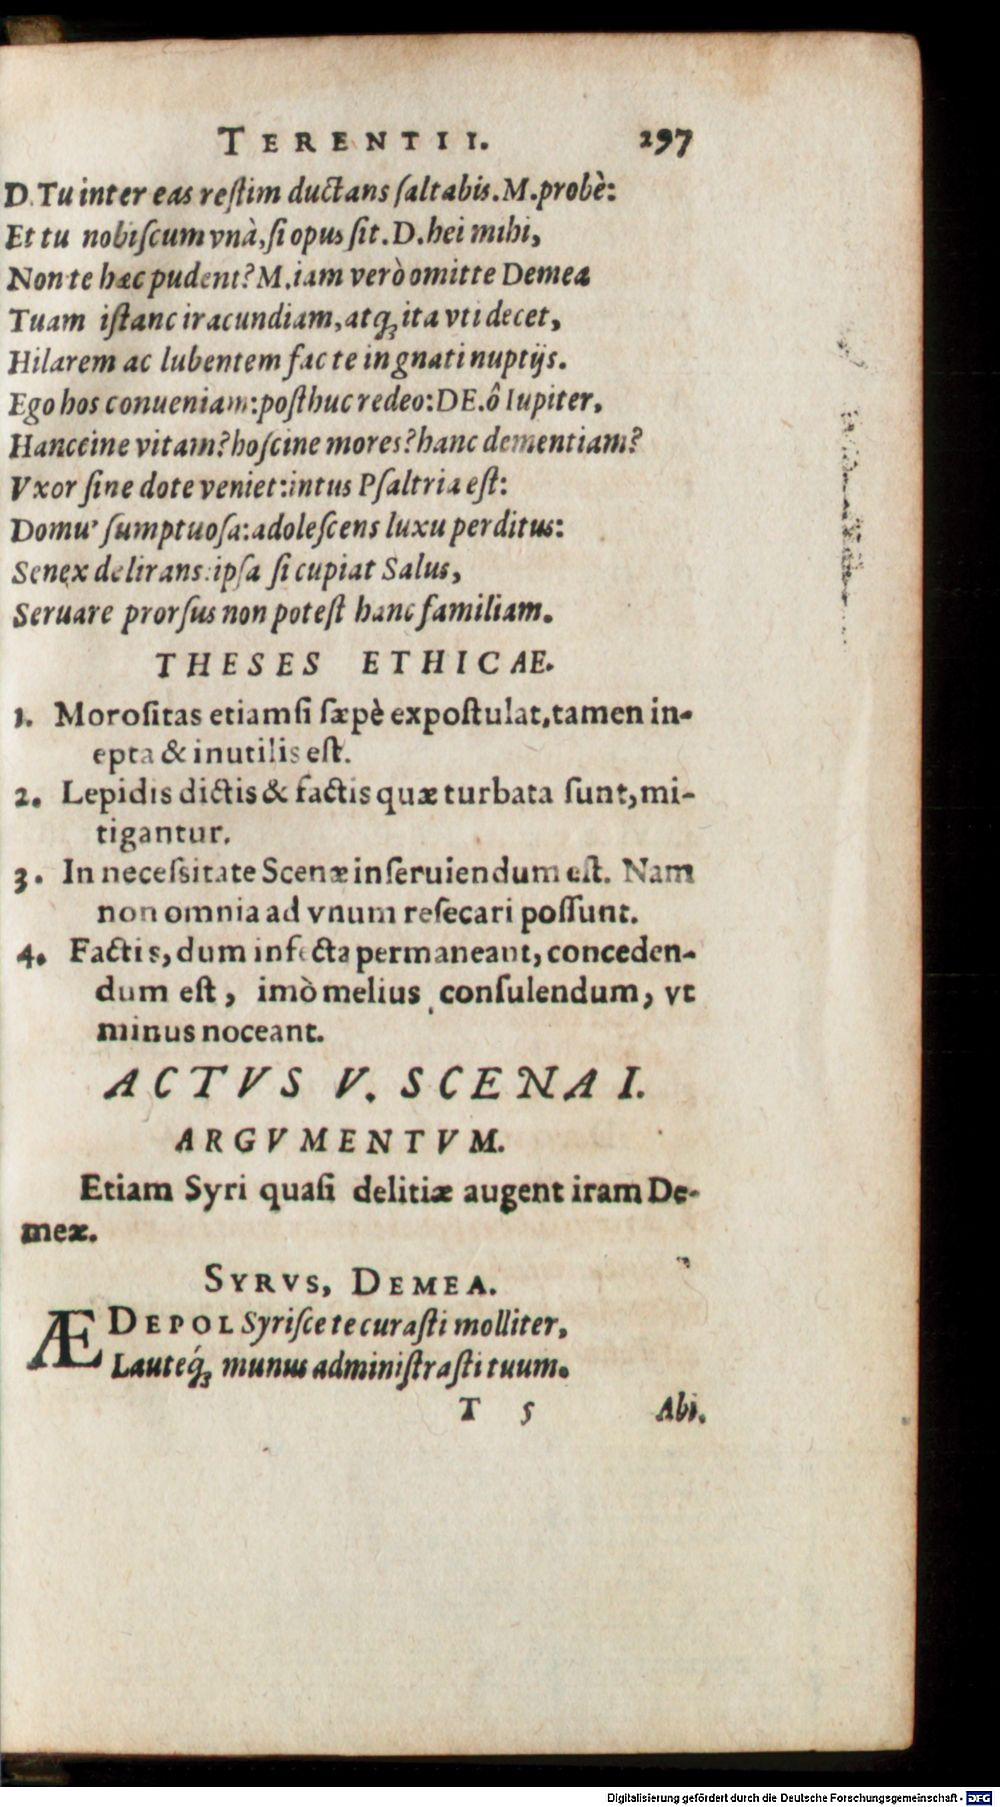 TERENTII. 297
D. Tu inter eas reſtim ductans ſaltabis. M. probè:
Et tu nobiſcum vnà, ſi opus ſit. D. hei mihi,
Non te hæc pudent? M. iam verò omitte Demea
Tuam iſtanc iracundiam, atq́; ita vti decet,
Hilarem ac lubentem fac te in gnati nuptijs.
Ego hos conueniam: poſt huc redeo: DE. ô Iupiter,
Hanccine vitam? hoſcine mores? hanc dementiam?
Vxor ſine dote veniet: intus Pſaltria eſt:
Domu' ſumptuoſa: adoleſcens luxu perditus:
Senex delirans: ipſa ſi cupiat Salus,
Seruare prorſus non poteſt hanc familiam.
THESES ETHICAE.
1. Moroſitas etiamſi ſæpè expoſtulat, tamen in-
epta & inutilis eſt.
2. Lepidis dictis & factis quæ turbata ſunt, mi-
tigantur.
3. In neceſsitate Scenæ inſeruiendum eſt. Nam
non omnia ad vnum reſecari poſſunt.
4. Factis, dum infecta permaneant, conceden-
dum eſt, imò melius conſulendum, vt
minus noceant.
ACTVS V. SCENA I.
ARGVMENTVM.
Etiam Syri quaſi delitiæ augent iram De-
meæ.
SYRVS, DEMEA.
ÆDEPOL Syriſce te curaſti molliter,
Lauteq́; munus adminiſtraſti tuum.
T 5 Abi.
Digitalisierung gefördert durch die Deutsche Forschungsgemeinschaft - DFG